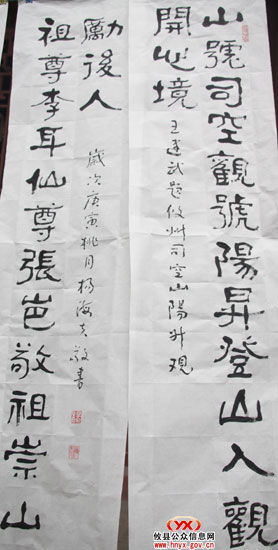 山號司空觀號陽昇登山入觀
開心境
王建武题攸州司空山陽升观
祖尊李耳仙尊張岜敬祖崇山
勵後人
歲次庚寅桃月杨海敬書
YX
攸县公众信息网
www.hnyx.gov.cn